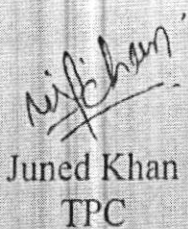 Juned Khan
TPC